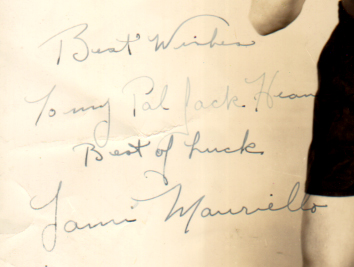 Best Wishes
To my Pal Jack
Best of Luck
Tami Mauriello